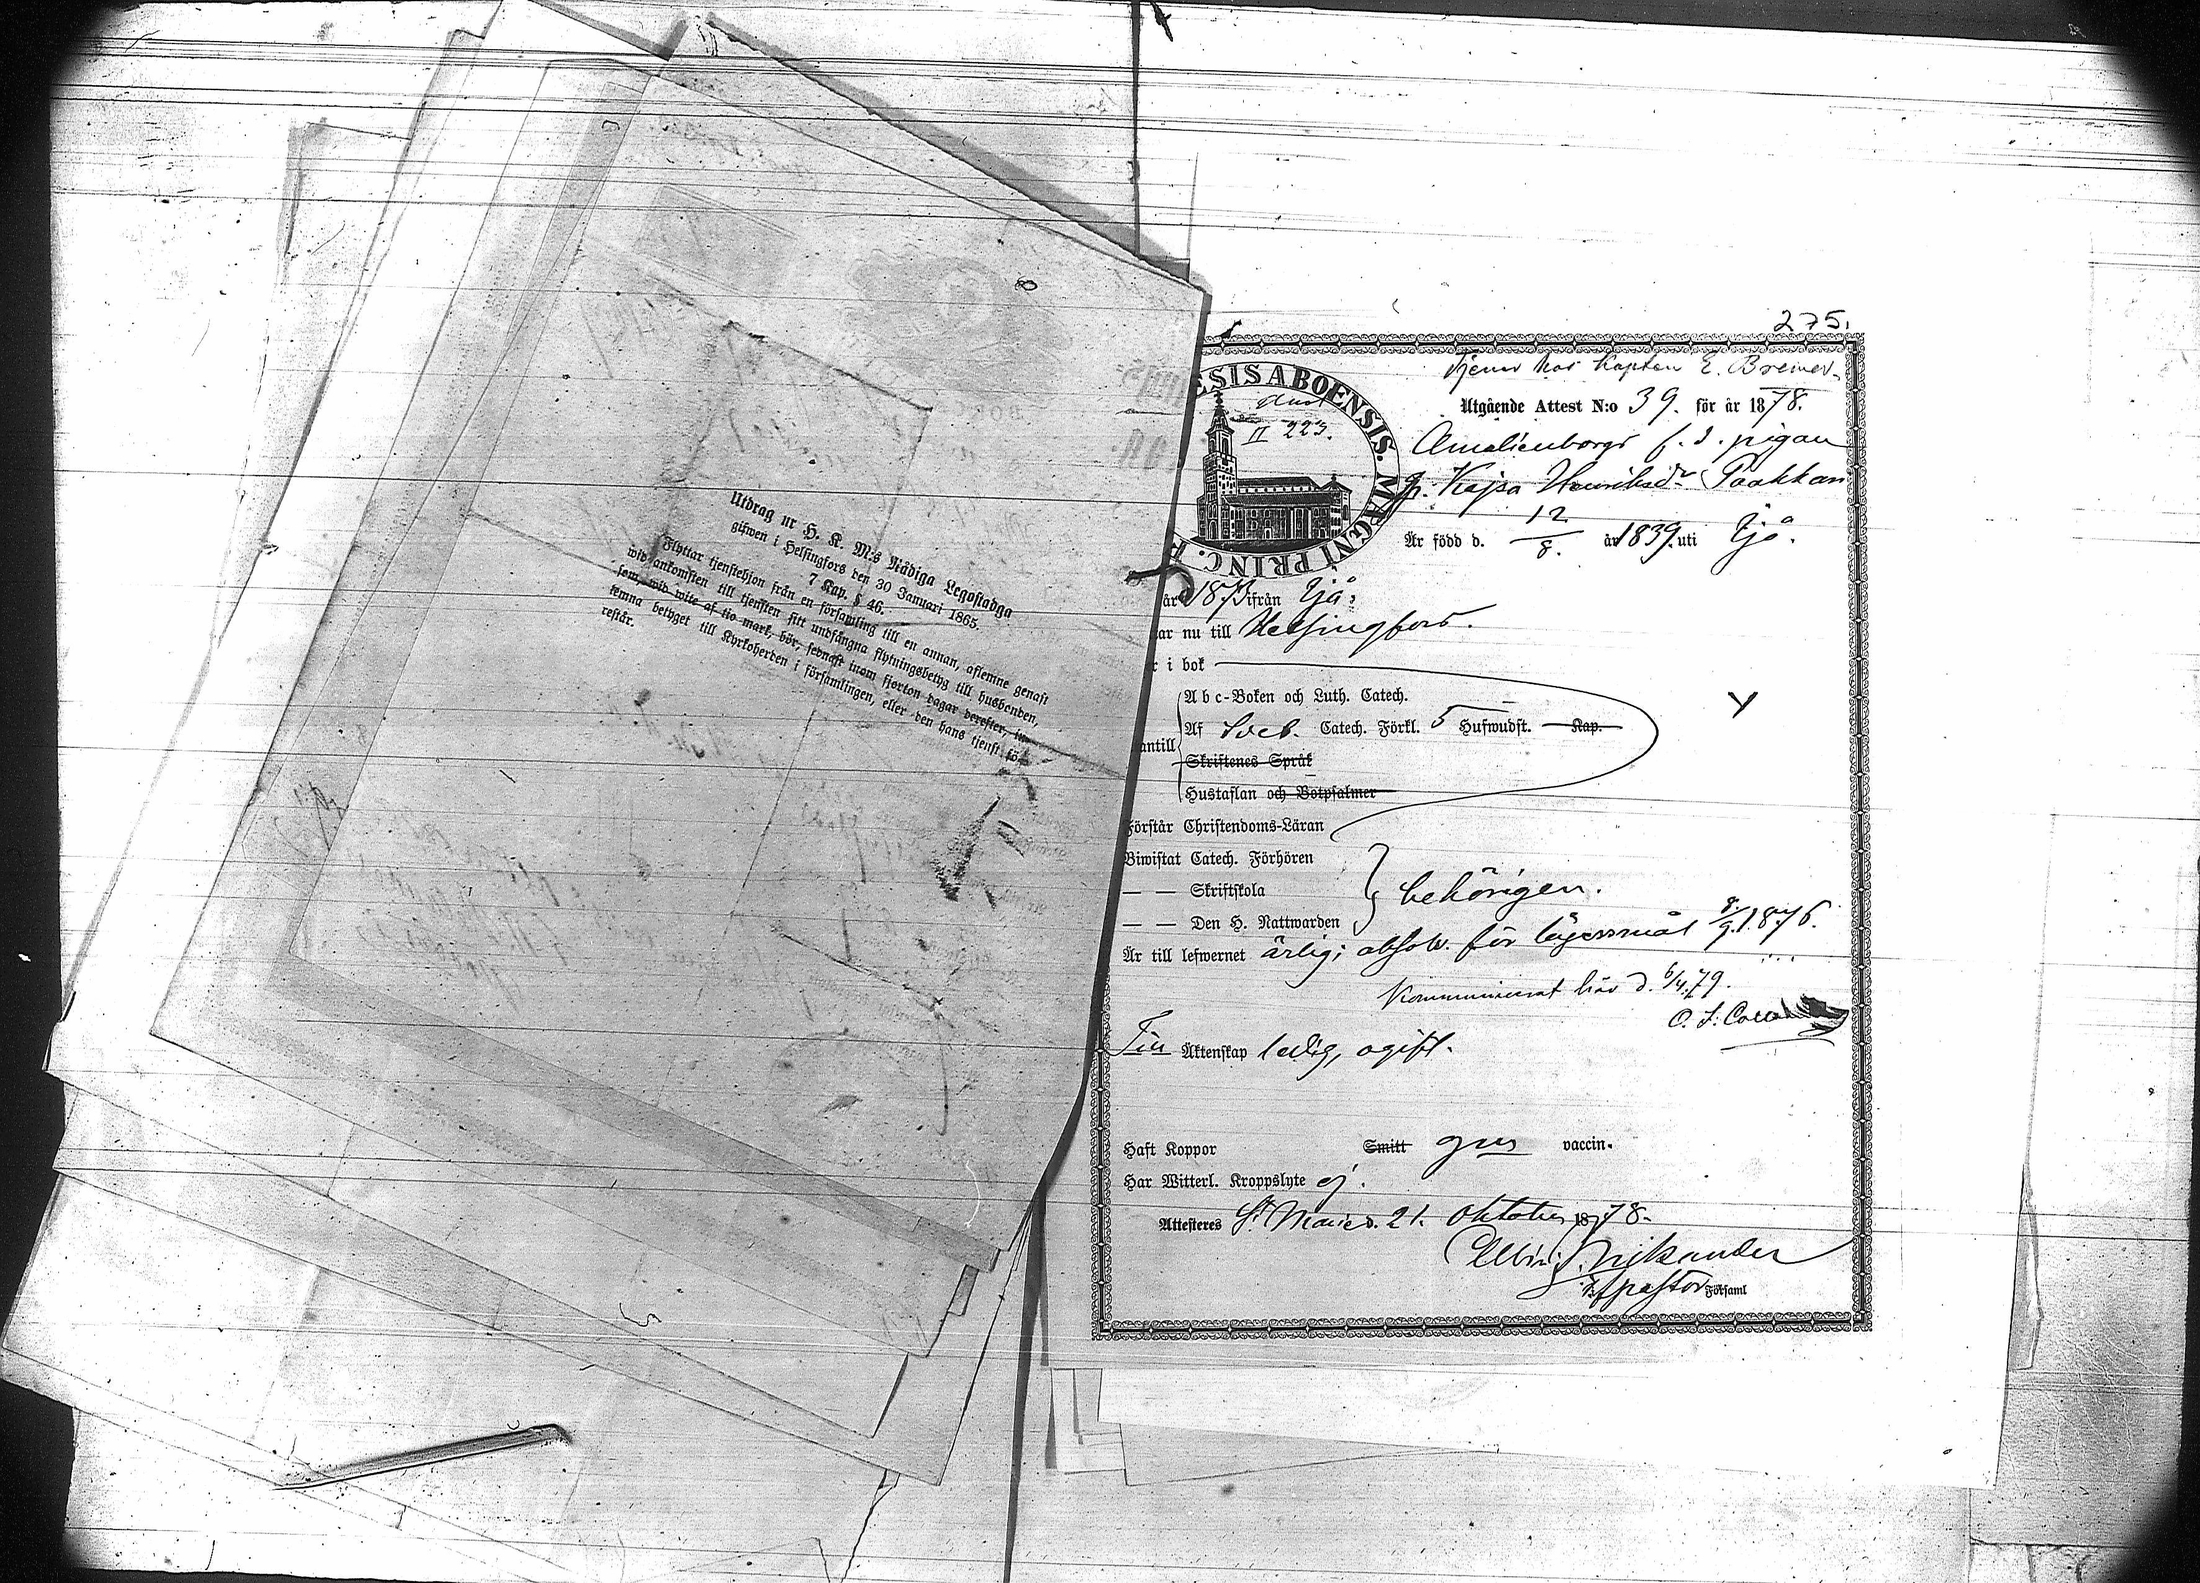 Utdrag ur H. K. M:s Nådiga Legostadga
gifwen i Helsingfors den 30 Januari 1865.
7 Kap. § 46.
Flyttar tjenstehjon från en församling till en annan, aflemne genast
wid ankomsten till tjensten sitt undfångna flyttningsbetyg till husbonden,
som, wid wite af tio mark, bör, sednast inom fjorton dagar derefter, in-
lemna betyget till Kyrkoherden i församlingen, eller den hans tjenst fö-
restår.
275.
Tjenar hos Kapten E. Bremer.
ESIS ABOENSIS. MAGNI PRINC. F
II 223.
Utgående Attest N:o 39. för år 1878.
Amalienborgs f. d. pigan
Kajsa Henriksdr Paakkan
Är född d. 12/8. år 1839. uti Ijå.
år 187 ifrån Ijå.
ar nu till Helsingfors.
r i bok
Abc-Boken och Luth. Catech.
Af Sveb. Catech. Förkl. 5 Hufwudst. Kap.
antill
Skriftenes Språk
Hustaflan och Botpsalmer
Förstår Christendoms-Läran
Biwistat Catech. Förhören
— — Skriftskola behörigen.
— — Den H. Nattwarden
Är till lefwernet ärlig; absolv. för lägersmål 8/9 1876.
Kommunicerat här d. 6/4 79.
Till Äktenskap ledig, ogift.
Haft Koppor Smitt vaccin.
Har Witterl. Kroppslyte ej.
Attesteres St Marie d. 21. Oktober 1878.
Nikander
pastor Församl